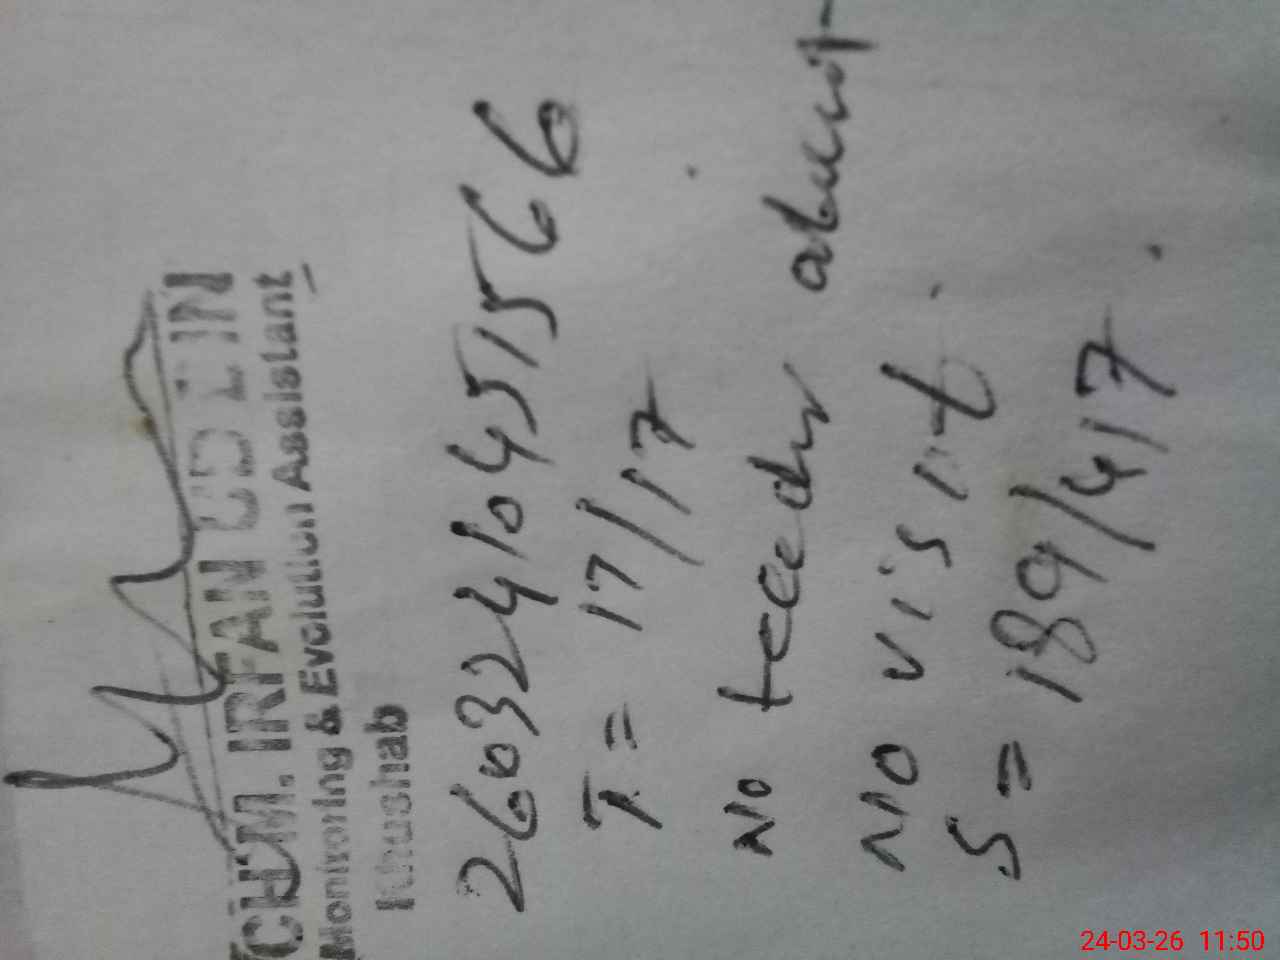 CHM. IRFAN UD DIN
Monitoring & Evolution Assistant
Khushab
26032410451566
T = 17/17
No
No visit
S = 189/417.
24-03-26 11:50